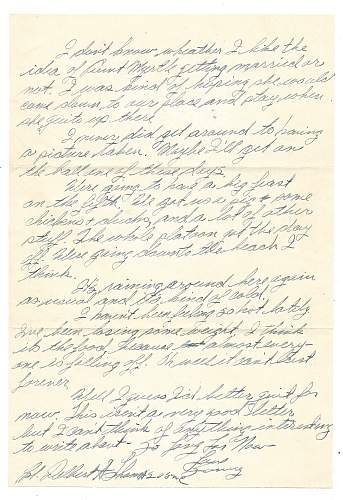 I don't know wheather I like the
idea of Aunt Myrtle getting married or
not. I was kind of hoping she would
come down to our place and stay when
she quits up there.
I never did get around to having
a picture taken. Maybe I'll get on
the ball one of these days.
We're going to have a big feast
on the fifth. We got us a pig & some
chickens & ducks, and a lot of other
stuff. The whole platoon gets the day
off. We're going down to the beach I
think.
Its raining around here again
as usual and its kind of cold.
I haven't been feeling so hot lately
I've been losing some weight. I think
its the food, because almost every-
one is falling off. Oh well it can't last
forever
Well I guess I'd better quit for
now. This isn't a very good letter
but I can't think of anything interesting
to write about. So Long For Now
Love